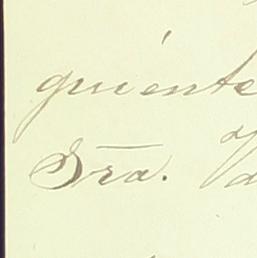 quiente
Sra.